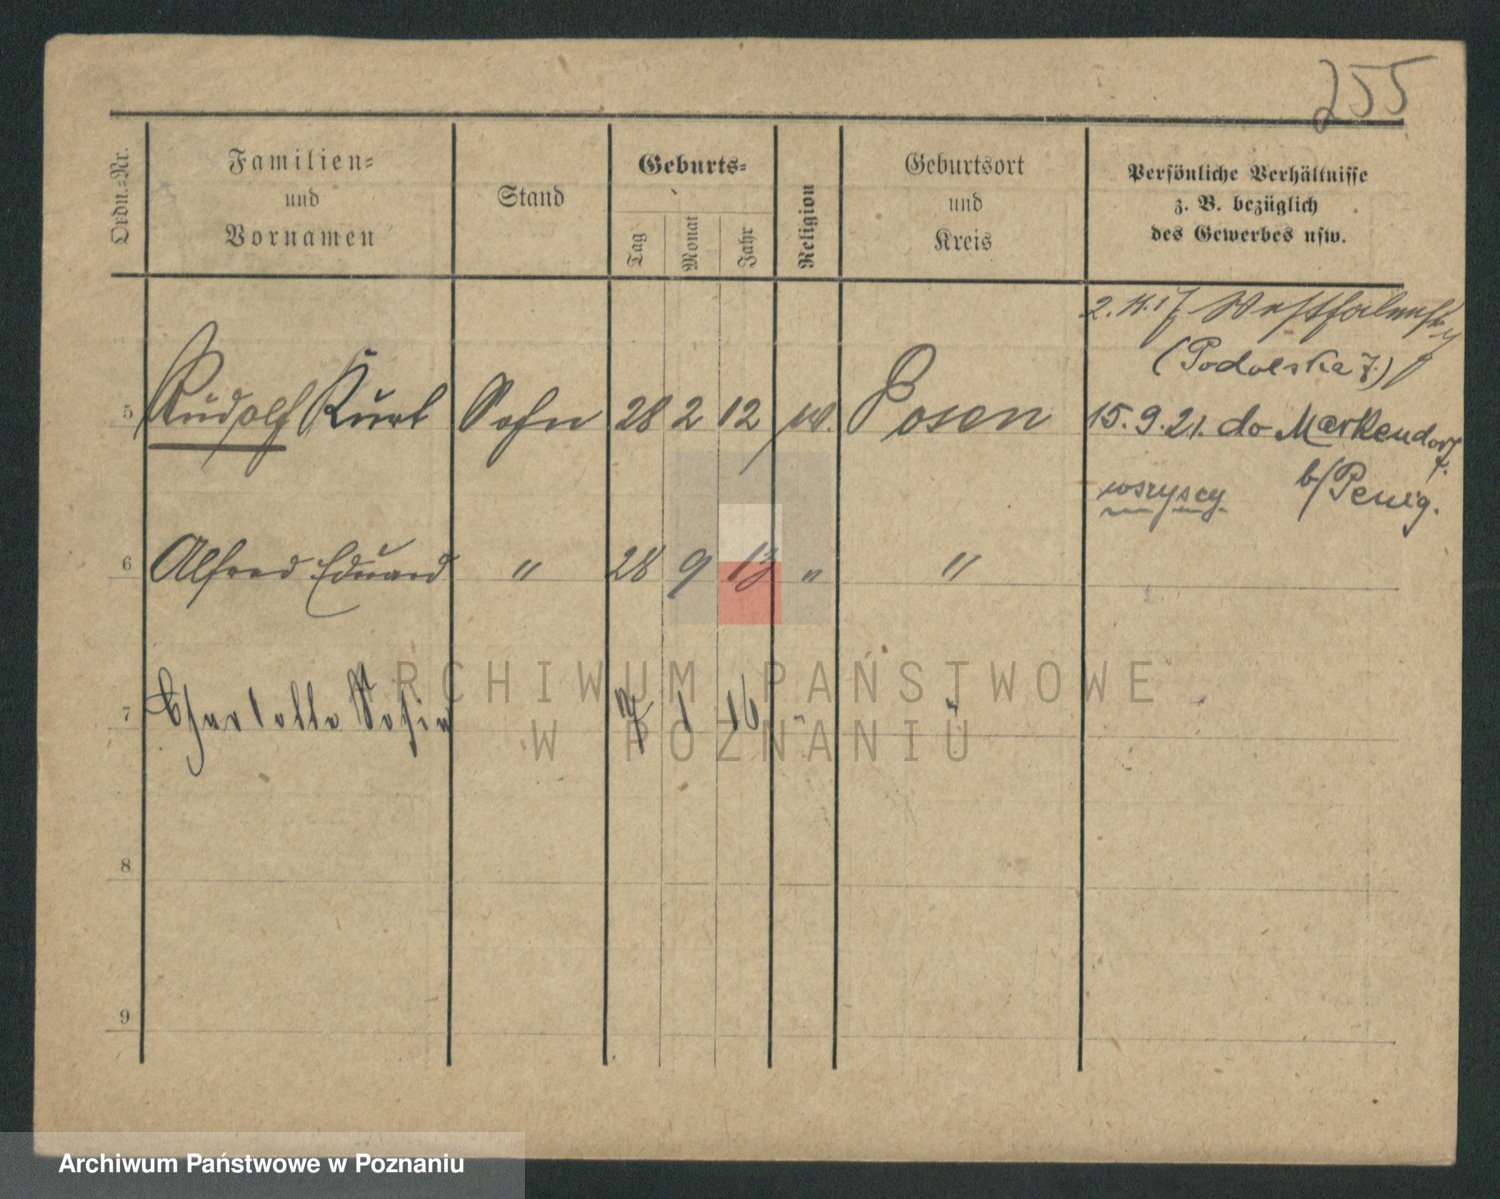 255
Ordn.-Nr.
Familien-
und
Vornamen
Stand
Geburts-
Tag
Monat
Jahr
Religion
Geburtsort
und
Kreis
Persönliche Verhältnisse
z. B. bezüglich
des Gewerbes usw.
2. 11. 17
(Podolska 7.)
5 Rudolf Kurt Sohn 28 2 12 Posen 15. 9. 21. do Markendorf
wszyscy b/Penig.
6 Alfred Eduard " 28 9 13 " "
7 Charlotte Sofie 1 16 " "
8
9
ARCHIWUM PAŃSTWOWE
W POZNANIU
Archiwum Państwowe w Poznaniu